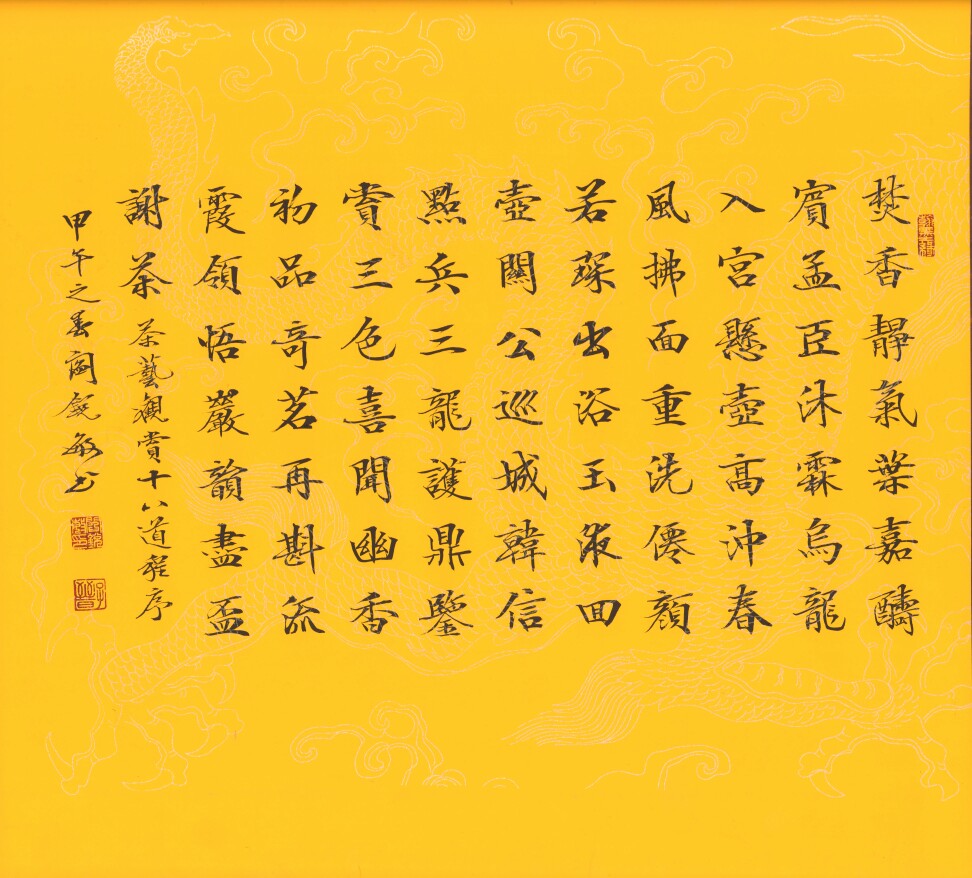 焚香靜氣葉嘉酬
賓孟臣沐霖烏龍
入宮懸壺高沖春
風拂面重洗僊顏
若琛出浴玉液回
壺關公巡城韓信
點兵三龍護鼎鑒
賞三色喜聞幽香
初品奇茗再斟流
霞領悟巖韻盡盃
謝茶
茶藝觀賞十八道程序
甲午之春閣敏書